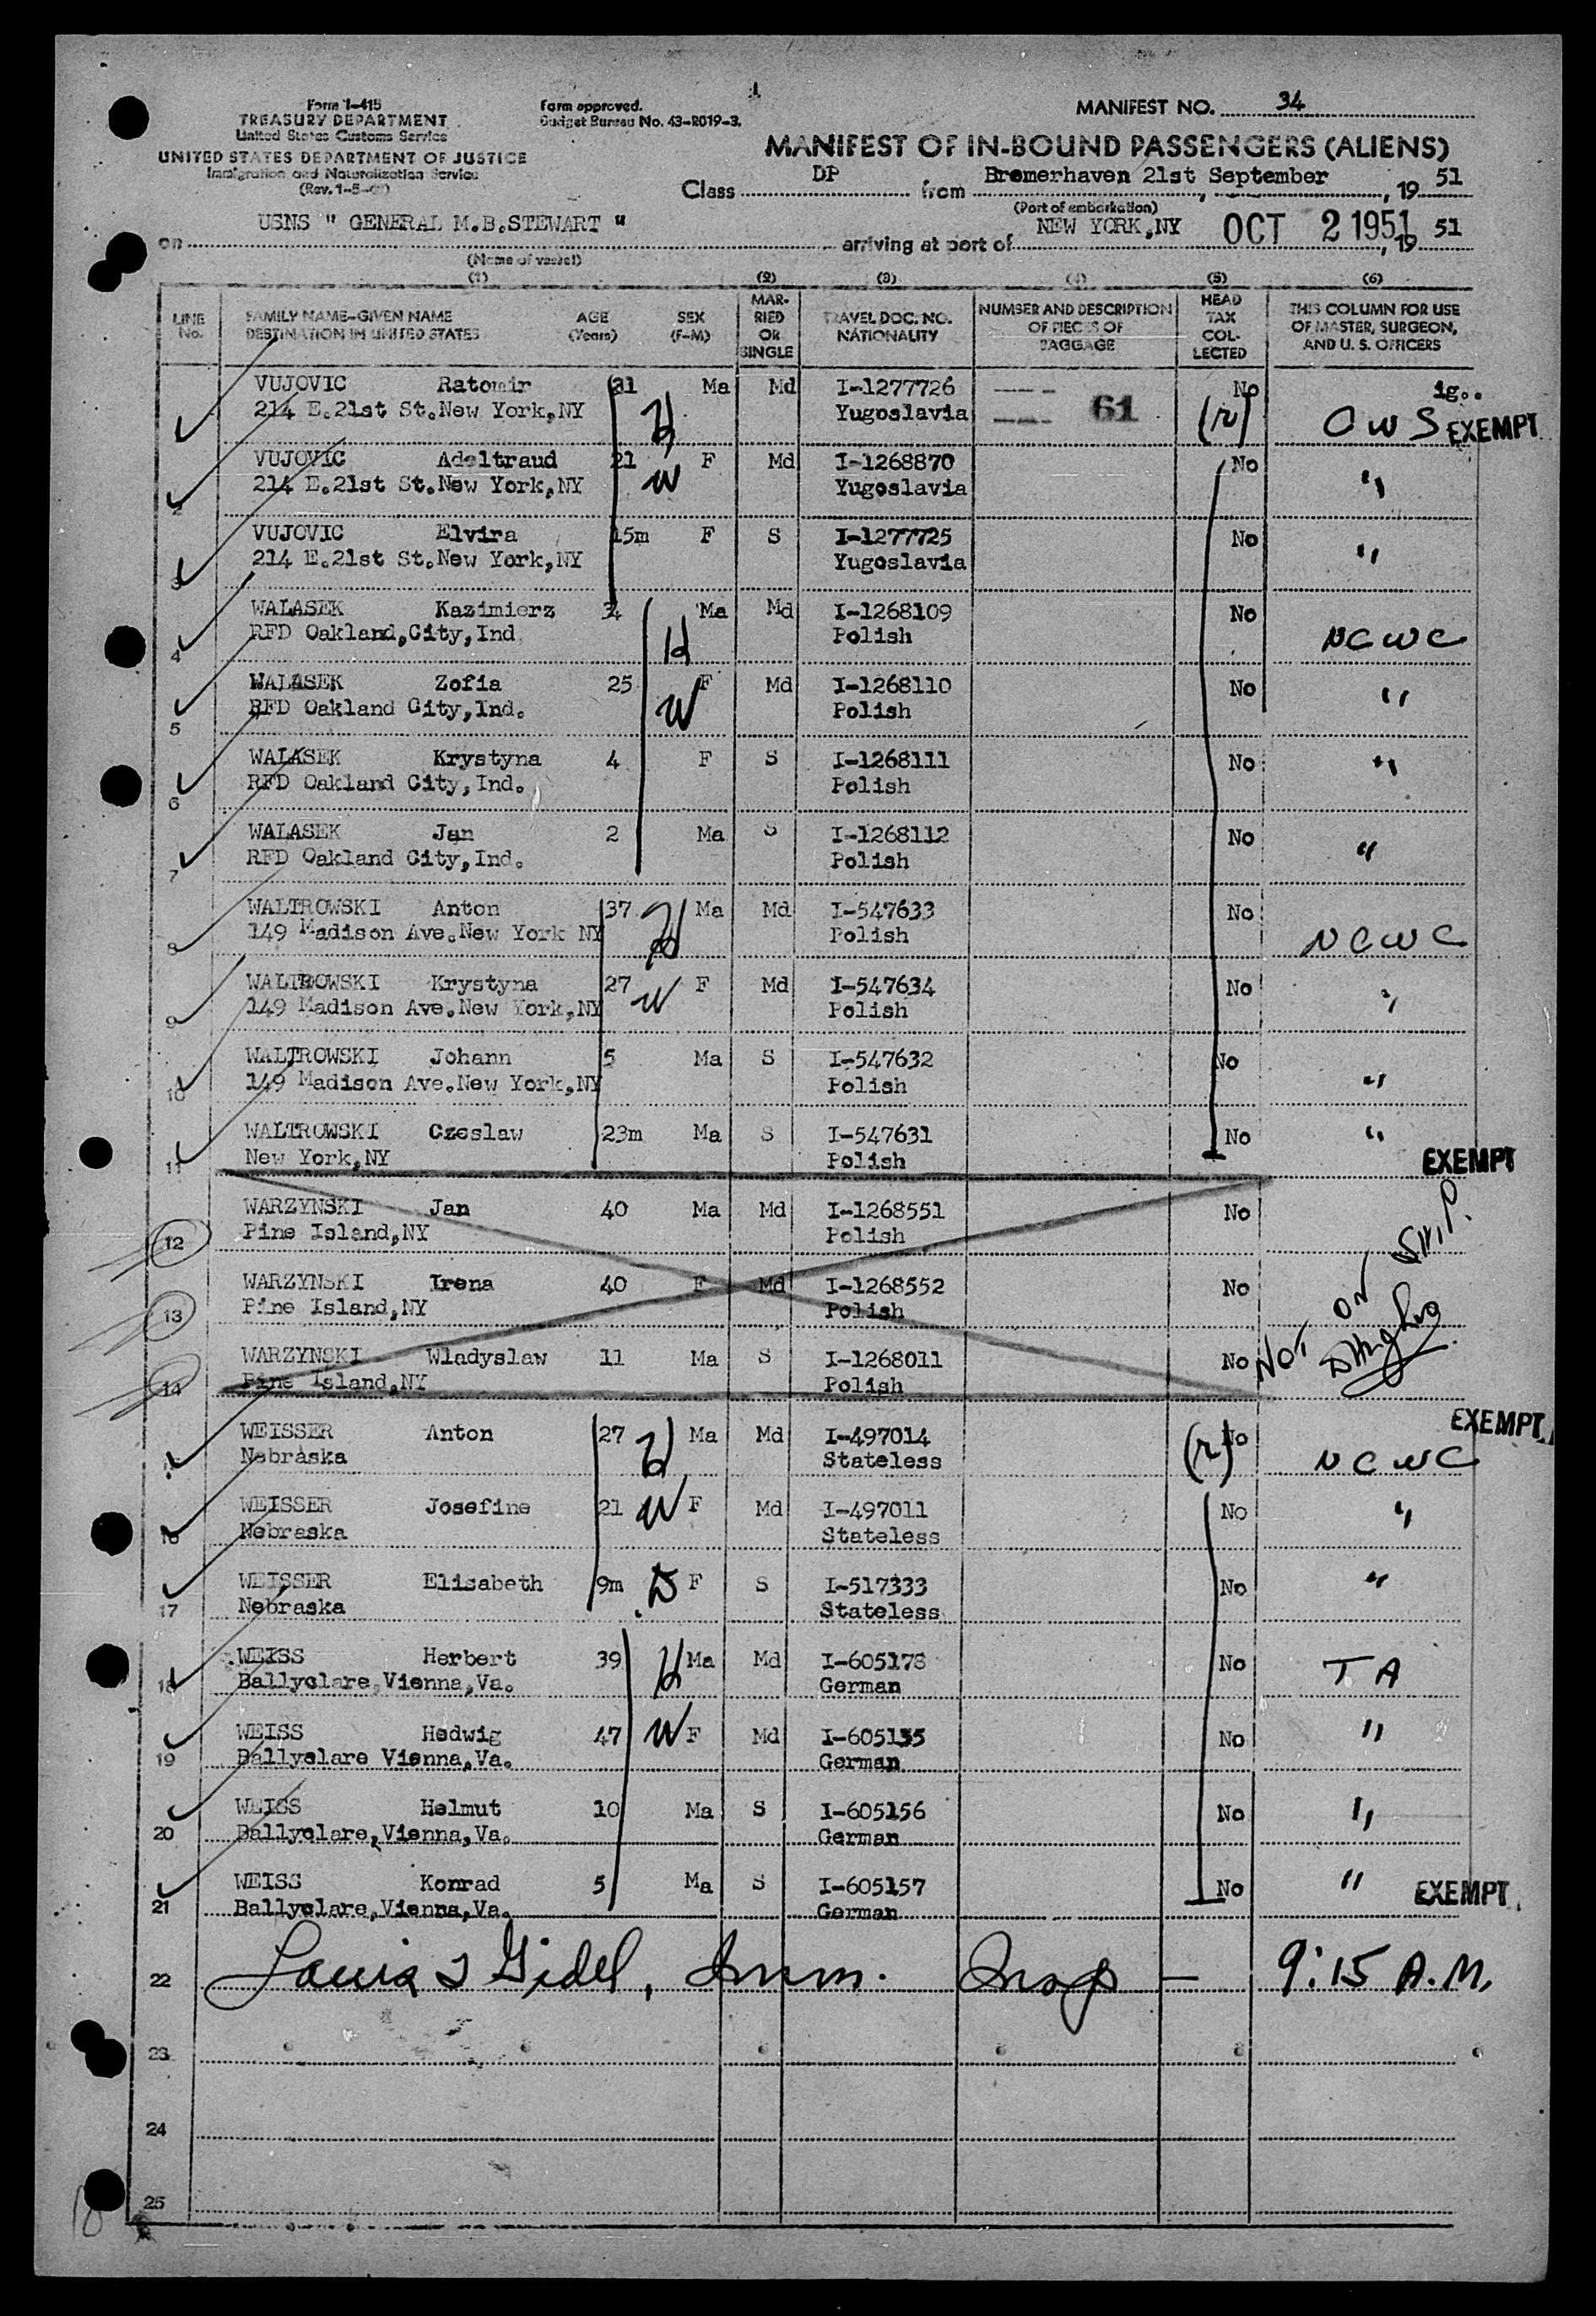 Form I-415
TREASURY DEPARTMENT
United States Customs Service
UNITED STATES DEPARTMENT OF JUSTICE
Immigration and Naturalization Service
(Rev. 1-5-
Form approved.
Budget Bureau No. 43-R019-3.
MANIFEST NO. 34
MANIFEST OF IN-BOUND PASSENGERS (ALIENS)
Class DP from Bremerhaven 21st September, 19 51
(Port of embarkation)
on USNS " GENERAL M.B.STEWART " arriving at port of NEW YORK,NY OCT 2 1951, 19 51
(Name of vessel)
(1) (2) (3) (4) (5) (6)
LINE No. FAMILY NAME-GIVEN NAME DESTINATION IN UNITED STATES AGE (Years) SEX (F-M) MARRIED OR SINGLE TRAVEL DOC. NO. NATIONALITY NUMBER AND DESCRIPTION OF PIECES OF BAGGAGE HEAD TAX COLLECTED THIS COLUMN FOR USE OF MASTER, SURGEON, AND U. S. OFFICERS
VUJOVIC Ratomir 31 H Ma Md I-1277726 No ig..
214 E.21st St.New York,NY Yugoslavia 61 (r) CWS EXEMPT
VUJOVIC Adeltraud 21 W F Md I-1268870 No "
2 214 E.21st St.New York,NY Yugoslavia
VUJOVIC Elvira 15m F S I-1277725 No "
3 214 E.21st St.New York,NY Yugoslavia
WALASEK Kazimierz 34 H Ma Md I-1268109 No NCWC
4 RFD Oakland,City,Ind Polish
WALASEK Zofia 25 W F Md I-1268110 No "
5 RFD Oakland City,Ind. Polish
WALASEK Krystyna 4 F S I-1268111 No "
6 RFD Oakland City,Ind. Polish
WALASEK Jan 2 Ma S I-1268112 No "
7 RFD Oakland City,Ind. Polish
WALTROWSKI Anton 37 H Ma Md I-547633 No NCWC
8 149 Madison Ave.New York NY Polish
WALTROWSKI Krystyna 27 W F Md I-547634 No "
9 149 Madison Ave.New York,NY Polish
WALTROWSKI Johann 5 Ma S I-547632 No "
10 149 Madison Ave.New York,NY Polish
WALTROWSKI Czeslaw 23m Ma S I-547631 No "
11 New York,NY Polish EXEMPT
WARZYNSKI Jan 40 Ma Md I-1268551 No
12 Pine Island,NY Polish
WARZYNSKI Irena 40 F Md I-1268552 No
13 Pine Island,NY Polish
WARZYNSKI Wladyslaw 11 Ma S I-1268011 No NOT ON SHIP.
14 Pine Island,NY Polish
WEISSER Anton 27 H Ma Md I-497014 (r) No EXEMPT
Nebraska Stateless NCWC
WEISSER Josefine 21 W F Md I-497011 No "
16 Nebraska Stateless
WEISSER Elisabeth 9m D F S I-517333 No "
17 Nebraska Stateless
WEISS Herbert 39 H Ma Md I-605178 No TA
18 Ballyclare,Vienna,Va. German
WEISS Hedwig 47 W F Md I-605155 No "
19 Ballyclare Vienna,Va. German
WEISS Helmut 10 Ma S I-605156 No "
20 Ballyclare,Vienna,Va. German
WEISS Konrad 5 Ma S I-605157 No " EXEMPT
21 Ballyclare,Vienna,Va. German
22 Louis J Gidel, Imm. Insp — 9:15 A.M.
23
24
25